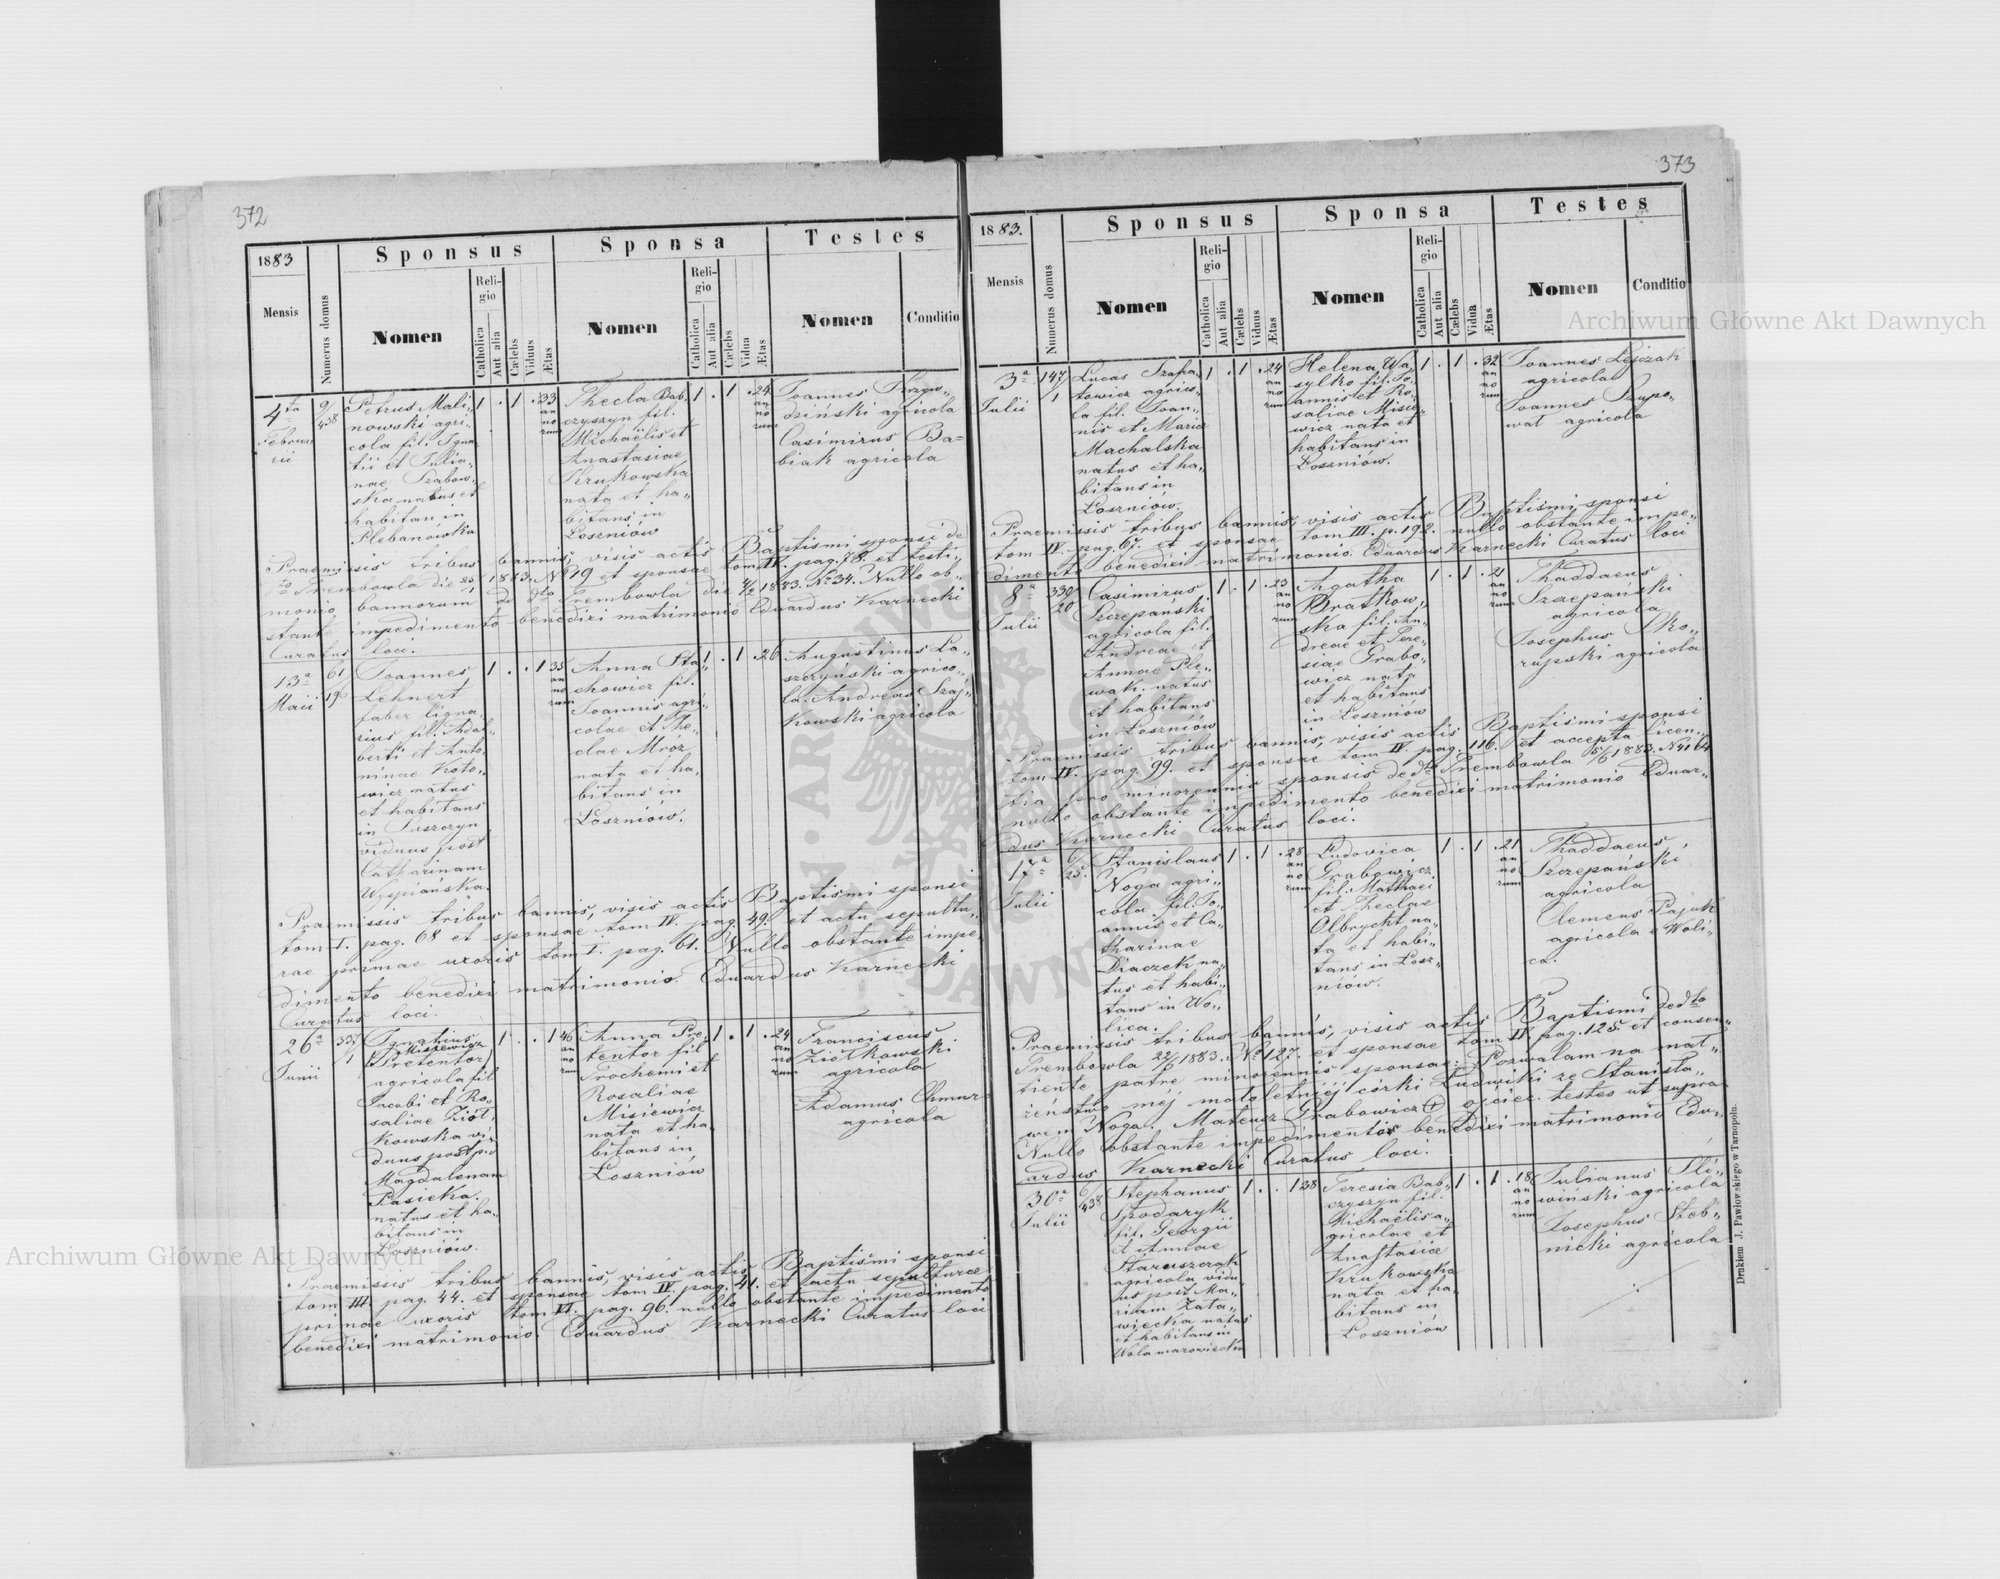 372
1883
Mensis
Numerus domus
Sponsus
Nomen
Religio
Catholica
Aut alia
Cælebs
Viduus
Ætas
Sponsa
Nomen
Religio
Catholica
Aut alia
Cælebs
Vidua
Ætas
Testes
Nomen
Conditio
4ta
Februarii
9/438
Petrus Mali„
nowski agri„
cola fil. Igna
tii et Julia„
nae Szabow„
ska natus et
habitan in
Plebanówka
1 . 1 . 33
an
no
rum
Thecla Bab„
czyszyn fil.
Michaëlis et
Anastasiae
Krukowska
nata et ha„
bitans in
Łoszniów
1 . 1 . 24
an
no
rum
Joannes
agricola
Casimirus Ba„
biak agricola
Praemissis tribus bannis, visis actis Baptismi sponsi de
dto Trembowla die 1883. No 19 et sponsae tom IV. pag. 78. et testi„
monio bannorum de dto Trembowla die 4/2 1883. No 34. Nullo ob„
stante impedimento benedixi matrimonio Eduardus Karnecki
Curatus loci.
13a
Maii
61/196
Joannes
Lehnert
faber ligna„
rius fil. Adal„
berti et Anto„
ninae Koto„
wicz natus
et habitans
in Suszczyn
viduus post
Catharinam
Wyspiańska.
1 . . 1 35
an
no
rum
Anna Sta„
chowicz fil.
Joannis agri„
colae et The„
clae Mroz
nata et ha„
bitans in
Łoszniów.
1 . 1 . 26
Augustinus La„
szczyński agrico„
la. Andreas Szaj„
kowski agricola
Praemissis tribus bannis, visis actis Baptismi sponsi
tom I. pag. 68 et sponsae tom IV. pag. 49. et actu sepultu„
rae primae uxoris tom I. pag. 61. Nullo obstante impe„
dimento benedixi matrimonio. Eduardus Karnecki
Curatus loci.
26a
Junii
337/1
Ignatius
Misiewicz
(Pretentor)
agricola fil
Jacobi et Ro„
saliae Ziół„
kowska vi„
duus post p.
Magdalenam
Pasieka.
natus et ha„
bitans in
Łoszniów.
1 . . 1 46
an
no
rum
Anna Pre„
tentor fil
Trochemi et
Rosaliae
Misiewicz
nata et ha„
bitans in
Łoszniów
1 . 1 . 24
an
no
rum
Franciscus
Ziółkowski
agricola
Adamus Chmura
agricola
Praemissis tribus bannis, visis actis Baptismi sponsi
tom III. pag. 44. et sponsae tom IV. pag. 41. et actu sepulturae
primae uxoris tom VI. pag. 96. nullo obstante impedimento
benedixi matrimonio. Eduardus Karnecki Curatus loci
373
1883.
Mensis
Numerus domus
Sponsus
Nomen
Religio
Catholica
Aut alia
Cælebs
Viduus
Ætas
Sponsa
Nomen
Religio
Catholica
Aut alia
Cælebs
Vidua
Ætas
Testes
Nomen
Conditio
3a
Julii
147/1
Lucas Szafa„
towicz agrico„
la fil. Joan„
nis et Maria
Machalska
natus et ha„
bitans in
Łoszniów.
1 . 1 . 24
an
no
rum
Helena Wa„
sylko fil. Jo„
annis et Ro„
saliae Misie„
wicz nata et
habitans in
Łoszniów.
1 . 1 . 32
an
no
rum
Joannes Lejczak
agricola
Joannes Szupo„
wat agricola
Praemissis tribus bannis, visis actis Baptismi sponsi
tom IV. pag. 67. et sponsae tom III. p. 192. nullo obstante impe„
dimento benedixi matrimonio. Eduardus Karnecki Curatus loci
8a
Julii
330/20
Casimirus
Szczepański
agricola fil.
Andreae et
Annae Ple„
wak. natus
et habitans
in Łoszniów
1 . 1 . 23
an
no
rum
Agatha
Bratkow„
ska fil. An„
dreae et Tere„
siae Grabo„
wicz nata
et habitans
in Łoszniów
1 . 1 . 21
an
no
rum
Thaddaeus
Szczepański
agricola
Josephus Sko„
rupski agricola
Praemissis tribus bannis, visis actis Baptismi sponsi
tom IV. pag. 99. et sponsae tom IV. pag. 116. et accepta licen„
tia pro minorennis sponsis de dto Trembowla 1883. No 4164
nullo obstante impedimento benedixi matrimonio Eduar„
dus Karnecki Curatus loci.
17a
Julii
6/25.
Stanislaus
Noga agri„
cola. fil. Jo„
annis et Ca„
tharinae
Diaczek na„
tus et habi„
tans in Wo„
lica.
1 . 1 . 28
an
no
rum
Ludovica
Grabowicz
fil. Mathaei
et Theclae
Olbrycht na„
ta et habi„
tans in Łosz„
niów.
1 . 1 . 21
an
no
rum
Thaddaeus
Szczepański
agricola
Clemens Pajuk
agricola e Woli„
ca.
Praemissis tribus bannis, visis actis Baptismi de dto
Trembowla 1883. No 127. et sponsae tom IV. pag. 125. et consen„
tiente patre minorennis sponsae: Pozwalam na mał„
żeństwo mej małoletniej córki Ludwiki ze Stanisła„
wem Noga. Mateusz Grabowicz + ojciec. testes ut supra
Nullo obstante impedimento benedixi matrimonio Edu„
ardus Karnecki Curatus loci.
30a
Julii
6/438
Stephanus
Spodaryk
fil. Georgii
et Annae
Staruszczak
agricola vidu„
us post Ma„
riam Zata„
wiecka natus
et habitans in
Wola mazowiecka
1 . . 1 38
Teresia Bab„
czyszyn fil.
Michaëlis a„
gricolae et
Anastasiae
Krukowska
nata et ha„
bitans in
Łoszniów
1 . 1 . 18
an
no
rum
Julianus Sli„
wiński agricola
Josephus Steb„
nicki agricola
Drukiem J. Pawłowskiego w Tarnopolu.
Archiwum Główne Akt Dawnych
Archiwum Główne Akt Dawnych